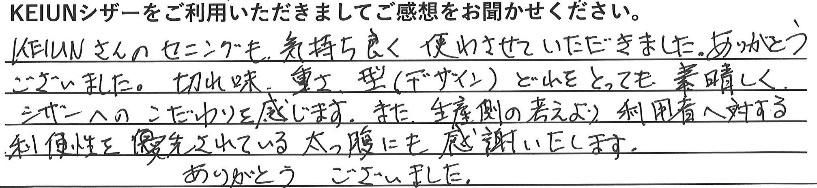 KEIUNシザーをご利用いただきましてご感想をお聞かせください。
KEIUNさんのセニングも、気持ち良く使わさせていただきました。ありがとう
ございました。切れ味、重さ、型(デザイン)どれをとっても、素晴しく、
シザーへのこだわりを感じます。また、生産側の考えより利用者へ対する
利便性を優先されている太っ腹にも感謝いたします。
ありがとうございました。